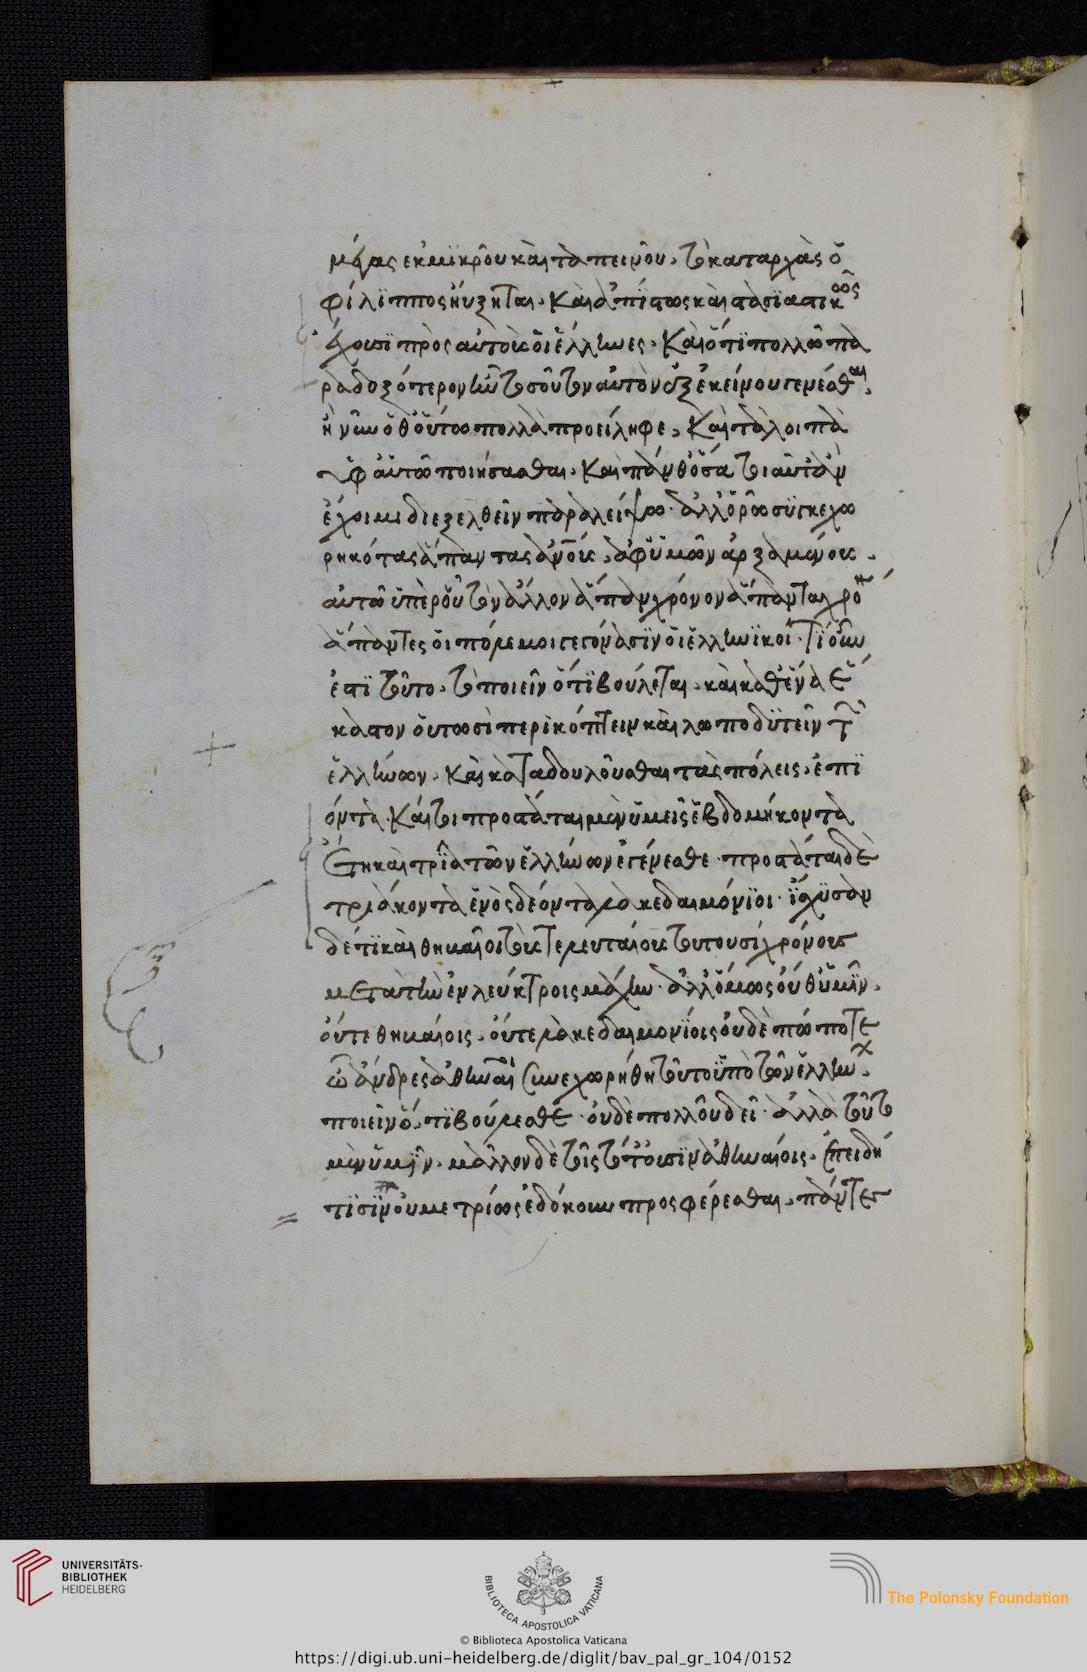 μέγας ἐκ μικροῦ καὶ ταπεινοῦ. τὸ καταρχὰς ὁ
φίλιππος ηὔξηται. καὶ ἀπίστως καὶ στασιαστικῶς
ἔχουσι πρὸς αὑτοὺς οἱ ἕλληνες. καὶ ὅτι πολλῶ πα
ραδοξότερον ἦν τοσοῦτον αὐτὸν ἐξ ἐκείνου γενέσθαι.
ἢ νῦν ὅθ' οὕτω πολλὰ προείληφε. καὶ τὰ λοιπὰ
ὑφ' αὑτῶ ποιήσασθαι. καὶ πάνθ' ὅσα τοιαῦτ' ἂν
ἔχοιμι διεξελθεῖν παραλείψω. ἀλλ' ὁρῶ συγκεχω
ρηκότας ἅπαντας ἀνους. ἀφ' ὑμῶν ἀρξαμένους.
αὐτῶ ὑπὲρ οὗ τὸν ἄλλον ἅπαντα χρόνον
ἅπαντες οἱ πόλεμοι γεγόνασιν οἱ ἑλληνικοί. τί οὖν
ἐστι τοῦτο. τὸ ποιεῖν ὅτι βούλεται. καὶ καθ' ἕνα ἕ
καστον οὑτωσὶ περικόπτειν καὶ λωποδυτεῖν τῶν
ἑλλήνων. καὶ καταδουλοῦσθαι τὰς πόλεις. ἐπι
όντα. καίτοι προστάται μὲν ὑμεῖς ἑβδομήκοντα
ἔτη καὶ τρία τῶν ἑλλήνων ἐγένεσθε. προστάται δὲ
τριάκοντα ἑνὸς δέοντα λακεδαιμόνιοι. ἴσχυσαν
δέ τι καὶ θηβαῖοι τοὺς τελευταίους τουτουσὶ χρόνους
μετὰ τὴν ἐν λεύκτροις μάχην. ἀλλ' ὅμως οὔθ' ὑμῖν.
οὔτε θηβαίοις. οὔτε λακεδαιμονίοις οὐδὲ πώποτε
ὦ ἄνδρες ἀθηναῖοι συνεχωρήθη τοῦτο ὑπὸ τῶν ἑλλήνων.
ποιεῖν ὅ,τι βούλεσθε. οὐδὲ πολλοῦ δεῖ. ἀλλὰ τοῦτο
μὲν ὑμῖν. μᾶλλον δὲ τοῖς τότ' οὖσιν ἀθηναίοις. ἐπειδή
τισιν οὐ μετρίως ἐδόκουν προσφέρεσθαι. πάντες
UNIVERSITÄTS-
BIBLIOTHEK
HEIDELBERG
BIBLIOTECA APOSTOLICA VATICANA
The Polonsky Foundation
© Biblioteca Apostolica Vaticana
https://digi.ub.uni-heidelberg.de/diglit/bav_pal_gr_104/0152